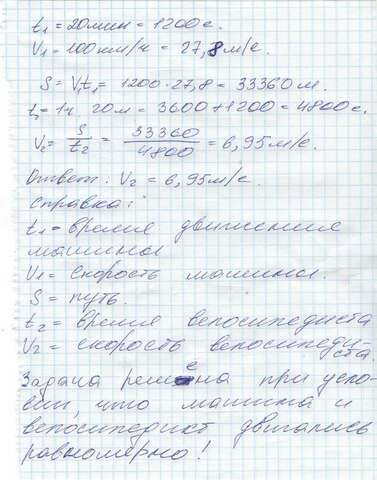 t₁ = 20 мин = 1200 с.
V₁ = 100 км/ч = 27,8 м/с.
S = V₁t₁ = 1200 · 27,8 = 33360 м.
t₂ = 1ч 20м = 3600 + 1200 = 4800 с.
V₂ = S/t₂ = 33360/4800 = 6,95 м/с.
Ответ: V₂ = 6,95 м/с.
Справка:
t₁ = время движения
машины
V₁ = скорость машины.
S = путь.
t₂ = время велосипедиста
V₂ = скорость велосипеди-
ста.
Задача решена при усло-
вии, что машина и
велосипедист двигались
равномерно!